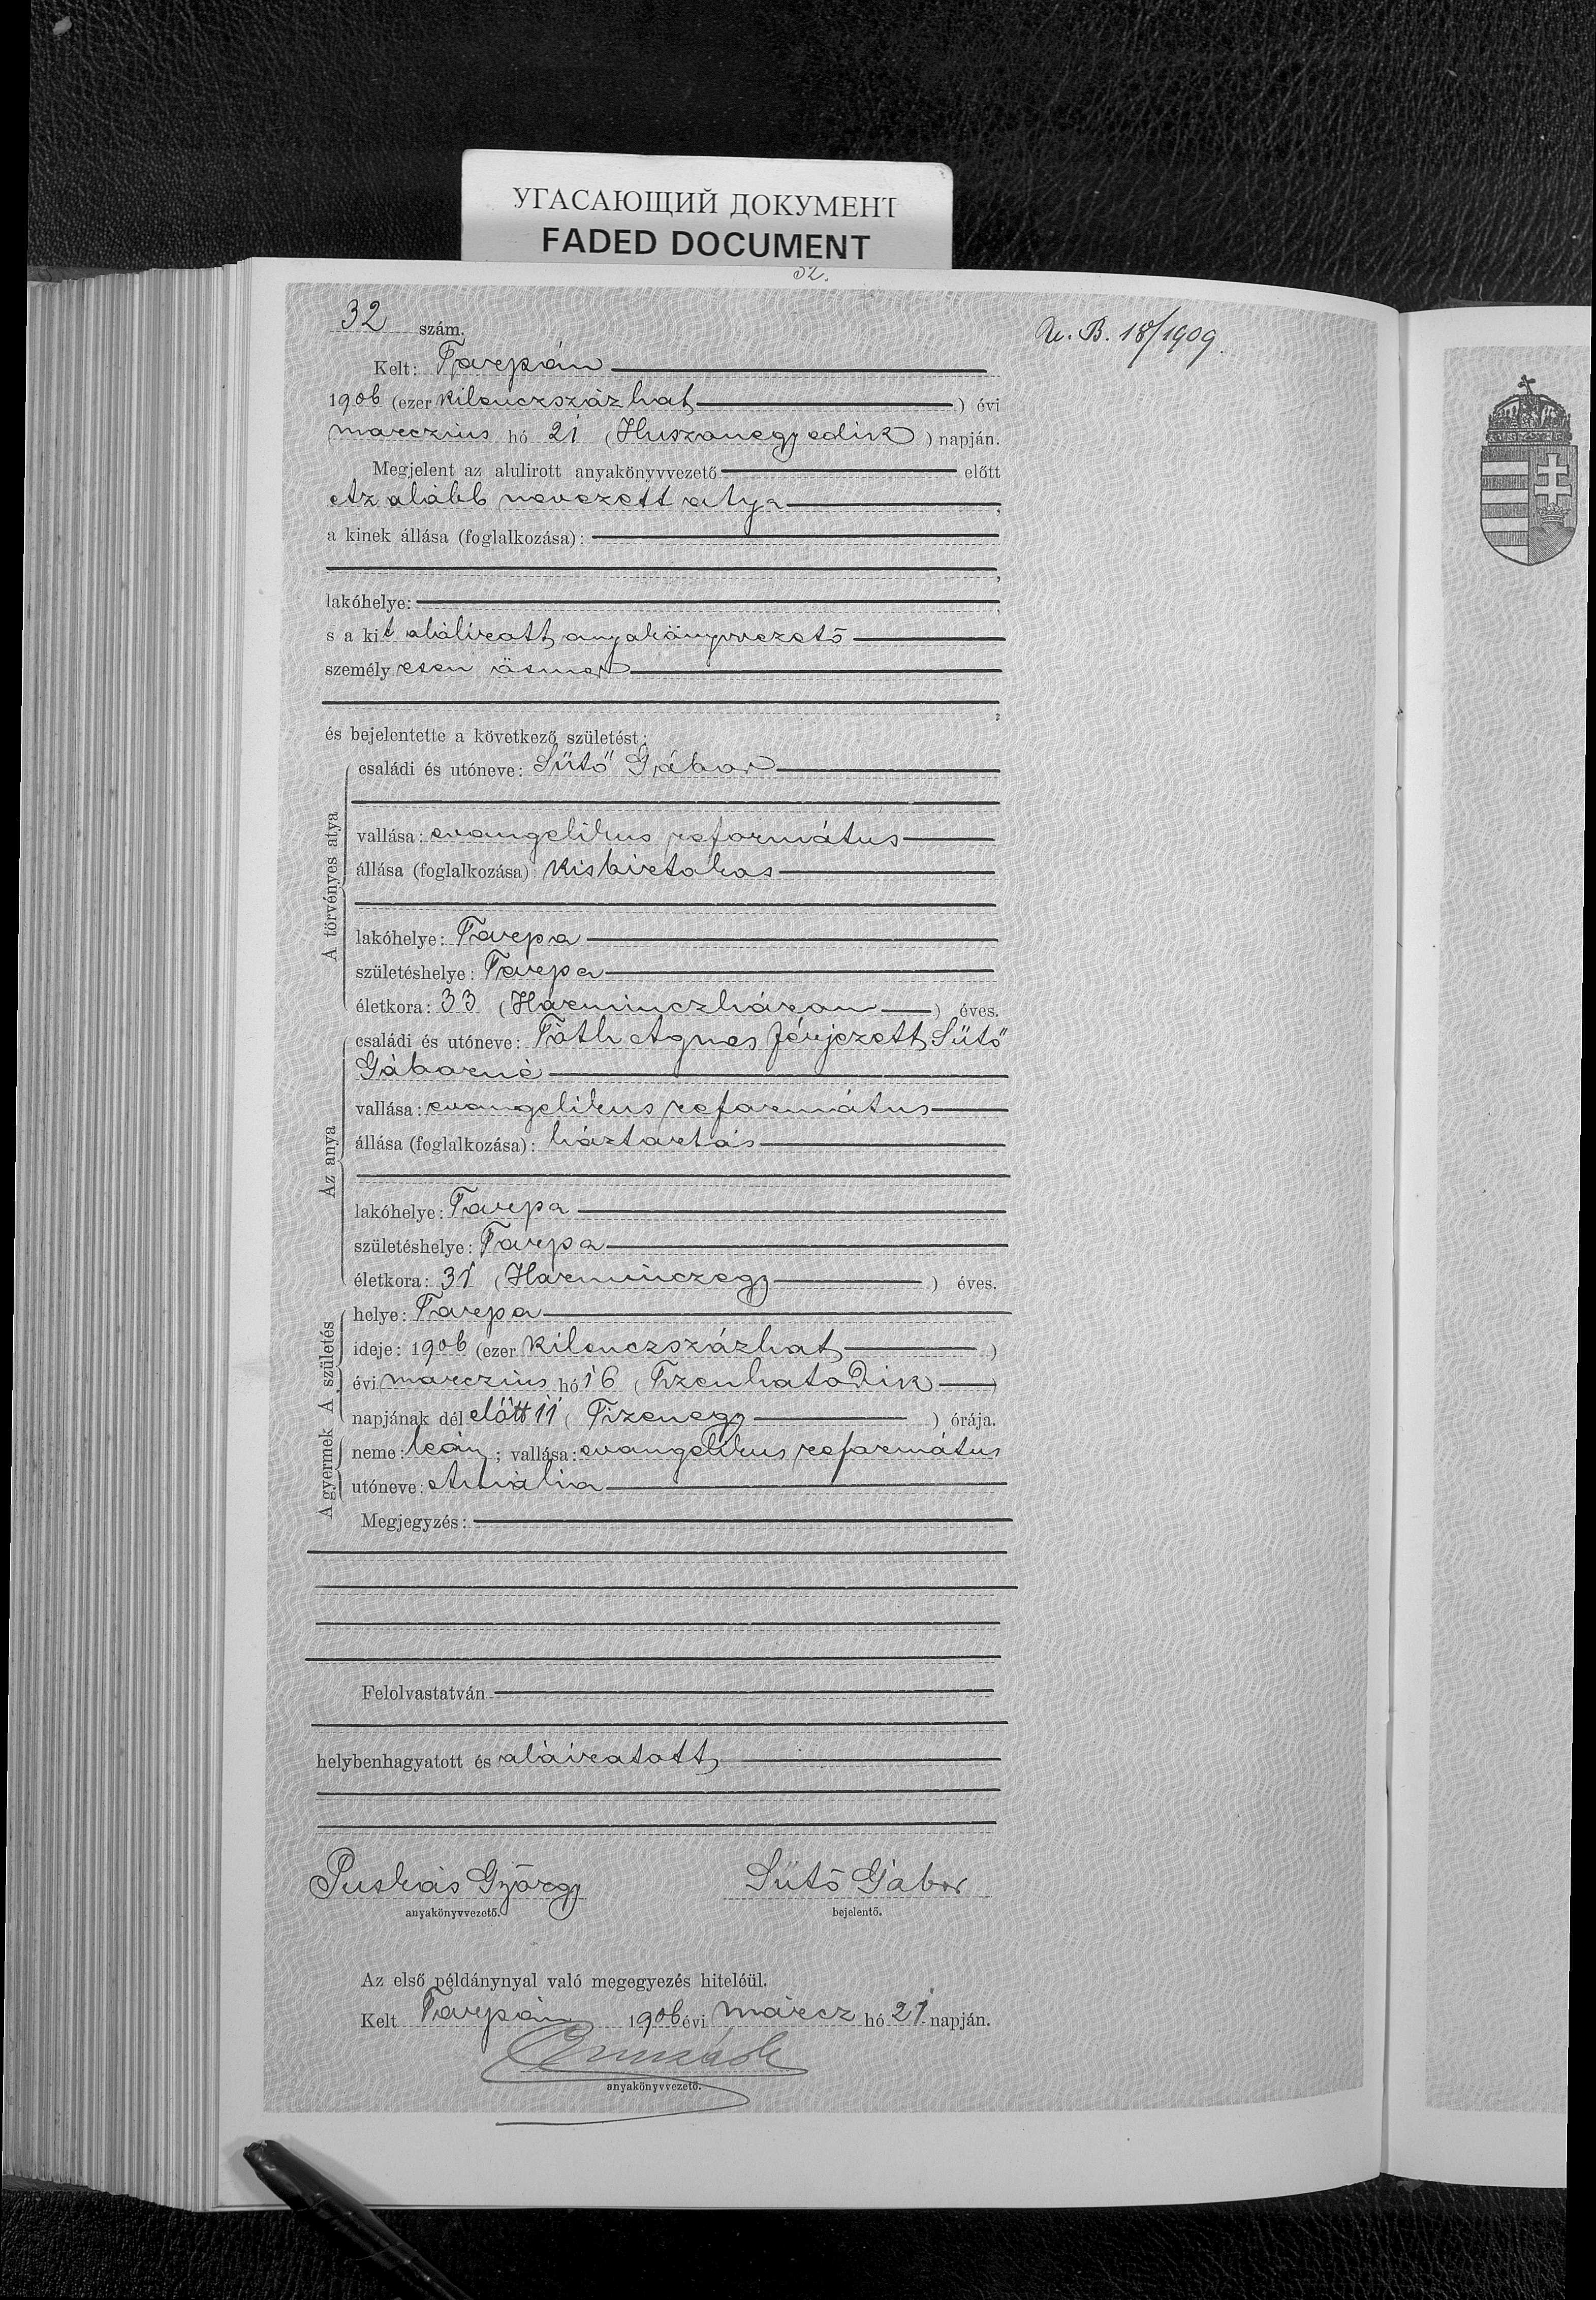 УГАСАЮЩИЙ ДОКУМЕНТ
FADED DOCUMENT
32.
32 szám.
B. 18/1909.
Kelt: Tarpán
1906 (ezer kilenczszázhat) évi
marczius hó 21 (Huszonegyedik) napján.
Megjelent az alulirott anyakönyvvezető előtt
Az alább nevezett atya,
a kinek állása (foglalkozása):
,
lakóhelye: ,
s a kit alólirott anyakönyvvezető
személyesen ösmer
,
és bejelentette a következő születést:
A törvényes atya
családi és utóneve: Sütő Gábor
vallása: evangelikus református
állása (foglalkozása): kisbirtokos
lakóhelye: Tarpa
születéshelye: Tarpa
életkora: 33 (Harminczhárom) éves.
Az anya
családi és utóneve: Tóth Ágnes férjezett Sütő
Gáborné
vallása: evangelikus református
állása (foglalkozása): háztartás
lakóhelye: Tarpa
születéshelye: Tarpa
életkora: 31 (Harminczegy) éves.
A születés
helye: Tarpa
ideje: 1906 (ezer kilenczszázhat)
évi marczius hó 16 (Tizenhatodik)
napjának délelőtt 11 (Tizenegy) órája.
A gyermek
neme: leány; vallása: evangelikus református
utóneve: Amália
Megjegyzés:
Felolvastatván
helybenhagyatott és aláiratott
Puskás György
anyakönyvvezető.
Sütő Gábor
bejelentő.
Az első példánynyal való megegyezés hiteléül.
Kelt Tarpán 1906 évi márcz hó 21 napján.
anyakönyvvezető.